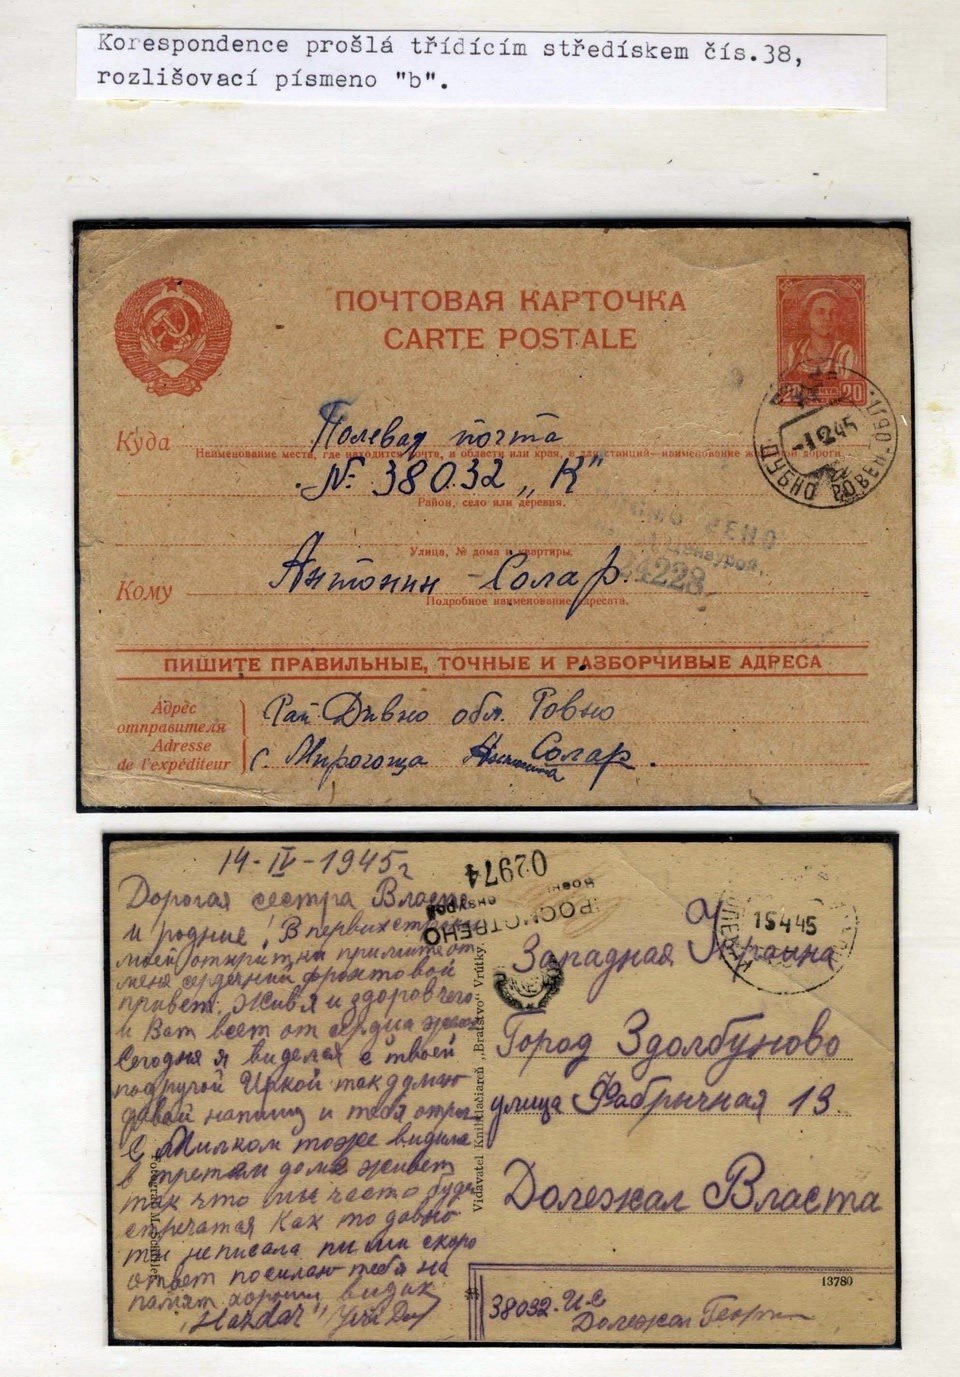 Korespondence prošlá třídícím střediskem čís.38,
rozlišovací písmeno "b".
ПОЧТОВАЯ КАРТОЧКА
CARTE POSTALE
20 20
-1 2 45
ДУБНО РОВЕН.
Куда
Полевая почта
Наименование места, где находится почта, и области или края, а для станций— наименование дороги
№ 38032 „К"
Район, село или деревня.
Улица, № дома и квартиры.
24228
Кому
Антонин Солар.
Подробное наименование адресата.
ПИШИТЕ ПРАВИЛЬНЫЕ, ТОЧНЫЕ И РАЗБОРЧИВЫЕ АДРЕСА
Адрес
отправителя
Adresse
de l'expéditeur
Рай. Дубно обл. Ровно
с. Мирогоща Солар.
14-IV-1945г
Дорогая сестра Власта
и родние! В первих строках
моей открытки примите от
меня сердечний фронтовой
привет. Жив я и здоров чего
и Вам всем от сердца
Сегодня я виделся с твоей
подругой Иркой так думаю
давай напишу и тебя
С Милком тоже
в третом доме живет
так что мы часто
Как то давно
ти не писала пиши скоро
ответ посилаю тебя на
памят хороши видик
„Nazdar"
02974
ПРОСМОТРЕНО
15 4 45
Vidavateľ Knihtlačiareň „Bratstvo" Vrútky.
Западная Украина
Город Здолбуново
улица Фабричная 13.
Долежал Власта
13780
38032-И.С
Долежал Георги